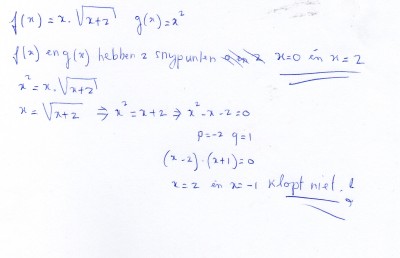 f(x) = x·√x+2 g(x) = x²
f(x) en g(x) hebben 2 snypunten x=0 én x=2
x² = x·√x+2
x = √x+2 ⇒ x² = x+2 ⇒ x²-x-2=0
p=-2 q=1
(x-2)·(x+1)=0
x=2 én x=-1 klopt niet.